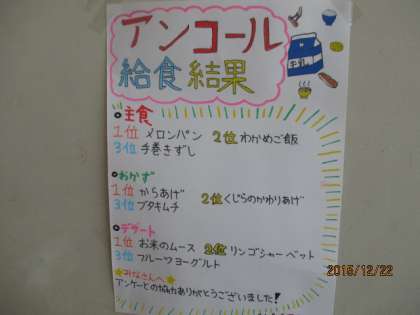 アンコール
給食結果
牛乳
主食
1位 メロンパン 2位 わかめご飯
3位 手巻きずし
おかず
1位 からあげ 2位 くじらのかわりあげ
3位 ブタキムチ
デザート
1位 お米のムース 2位 リンゴシャーベット
3位 フルーツヨーグルト
★みなさんへ★
アンケートの協力ありがとうございました!
2016/12/22